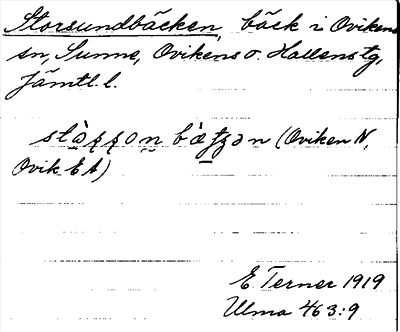 Storsundbäcken, bäck i Ovikens
sn, Sunne, Ovikens o. Hallens tg,
Jämtl. l.
(Oviken N,
Ovik E A)
E. Terner 1919
Ulma 463:9